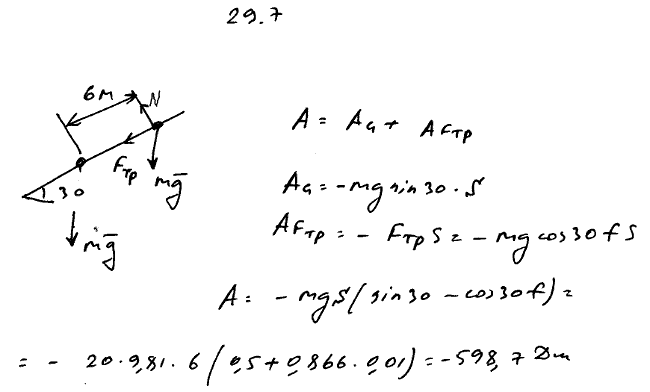 29.7
6м
N
Fтр
mg̅
30
mg̅
A = AG + AFтр
AG = -mg sin 30 · S
AFтр = - Fтр S = - mg cos 30 f S
A = - mgS(sin 30 - cos 30 f) =
= - 20 · 9,81 · 6 (0,5 + 0,866 · 0,01) = -598,7 Дж